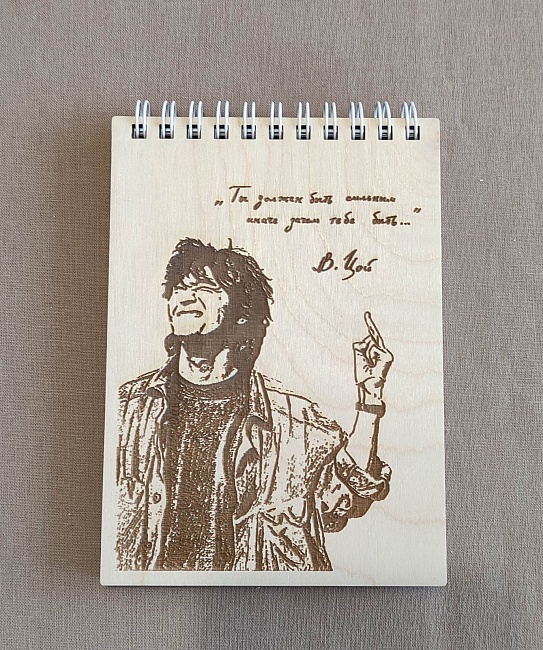 „Ты должен быть сильным
иначе зачем тебе быть..."
В. Цой